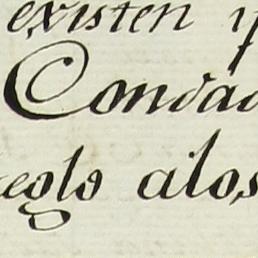 existen y
Condad
reglo alos